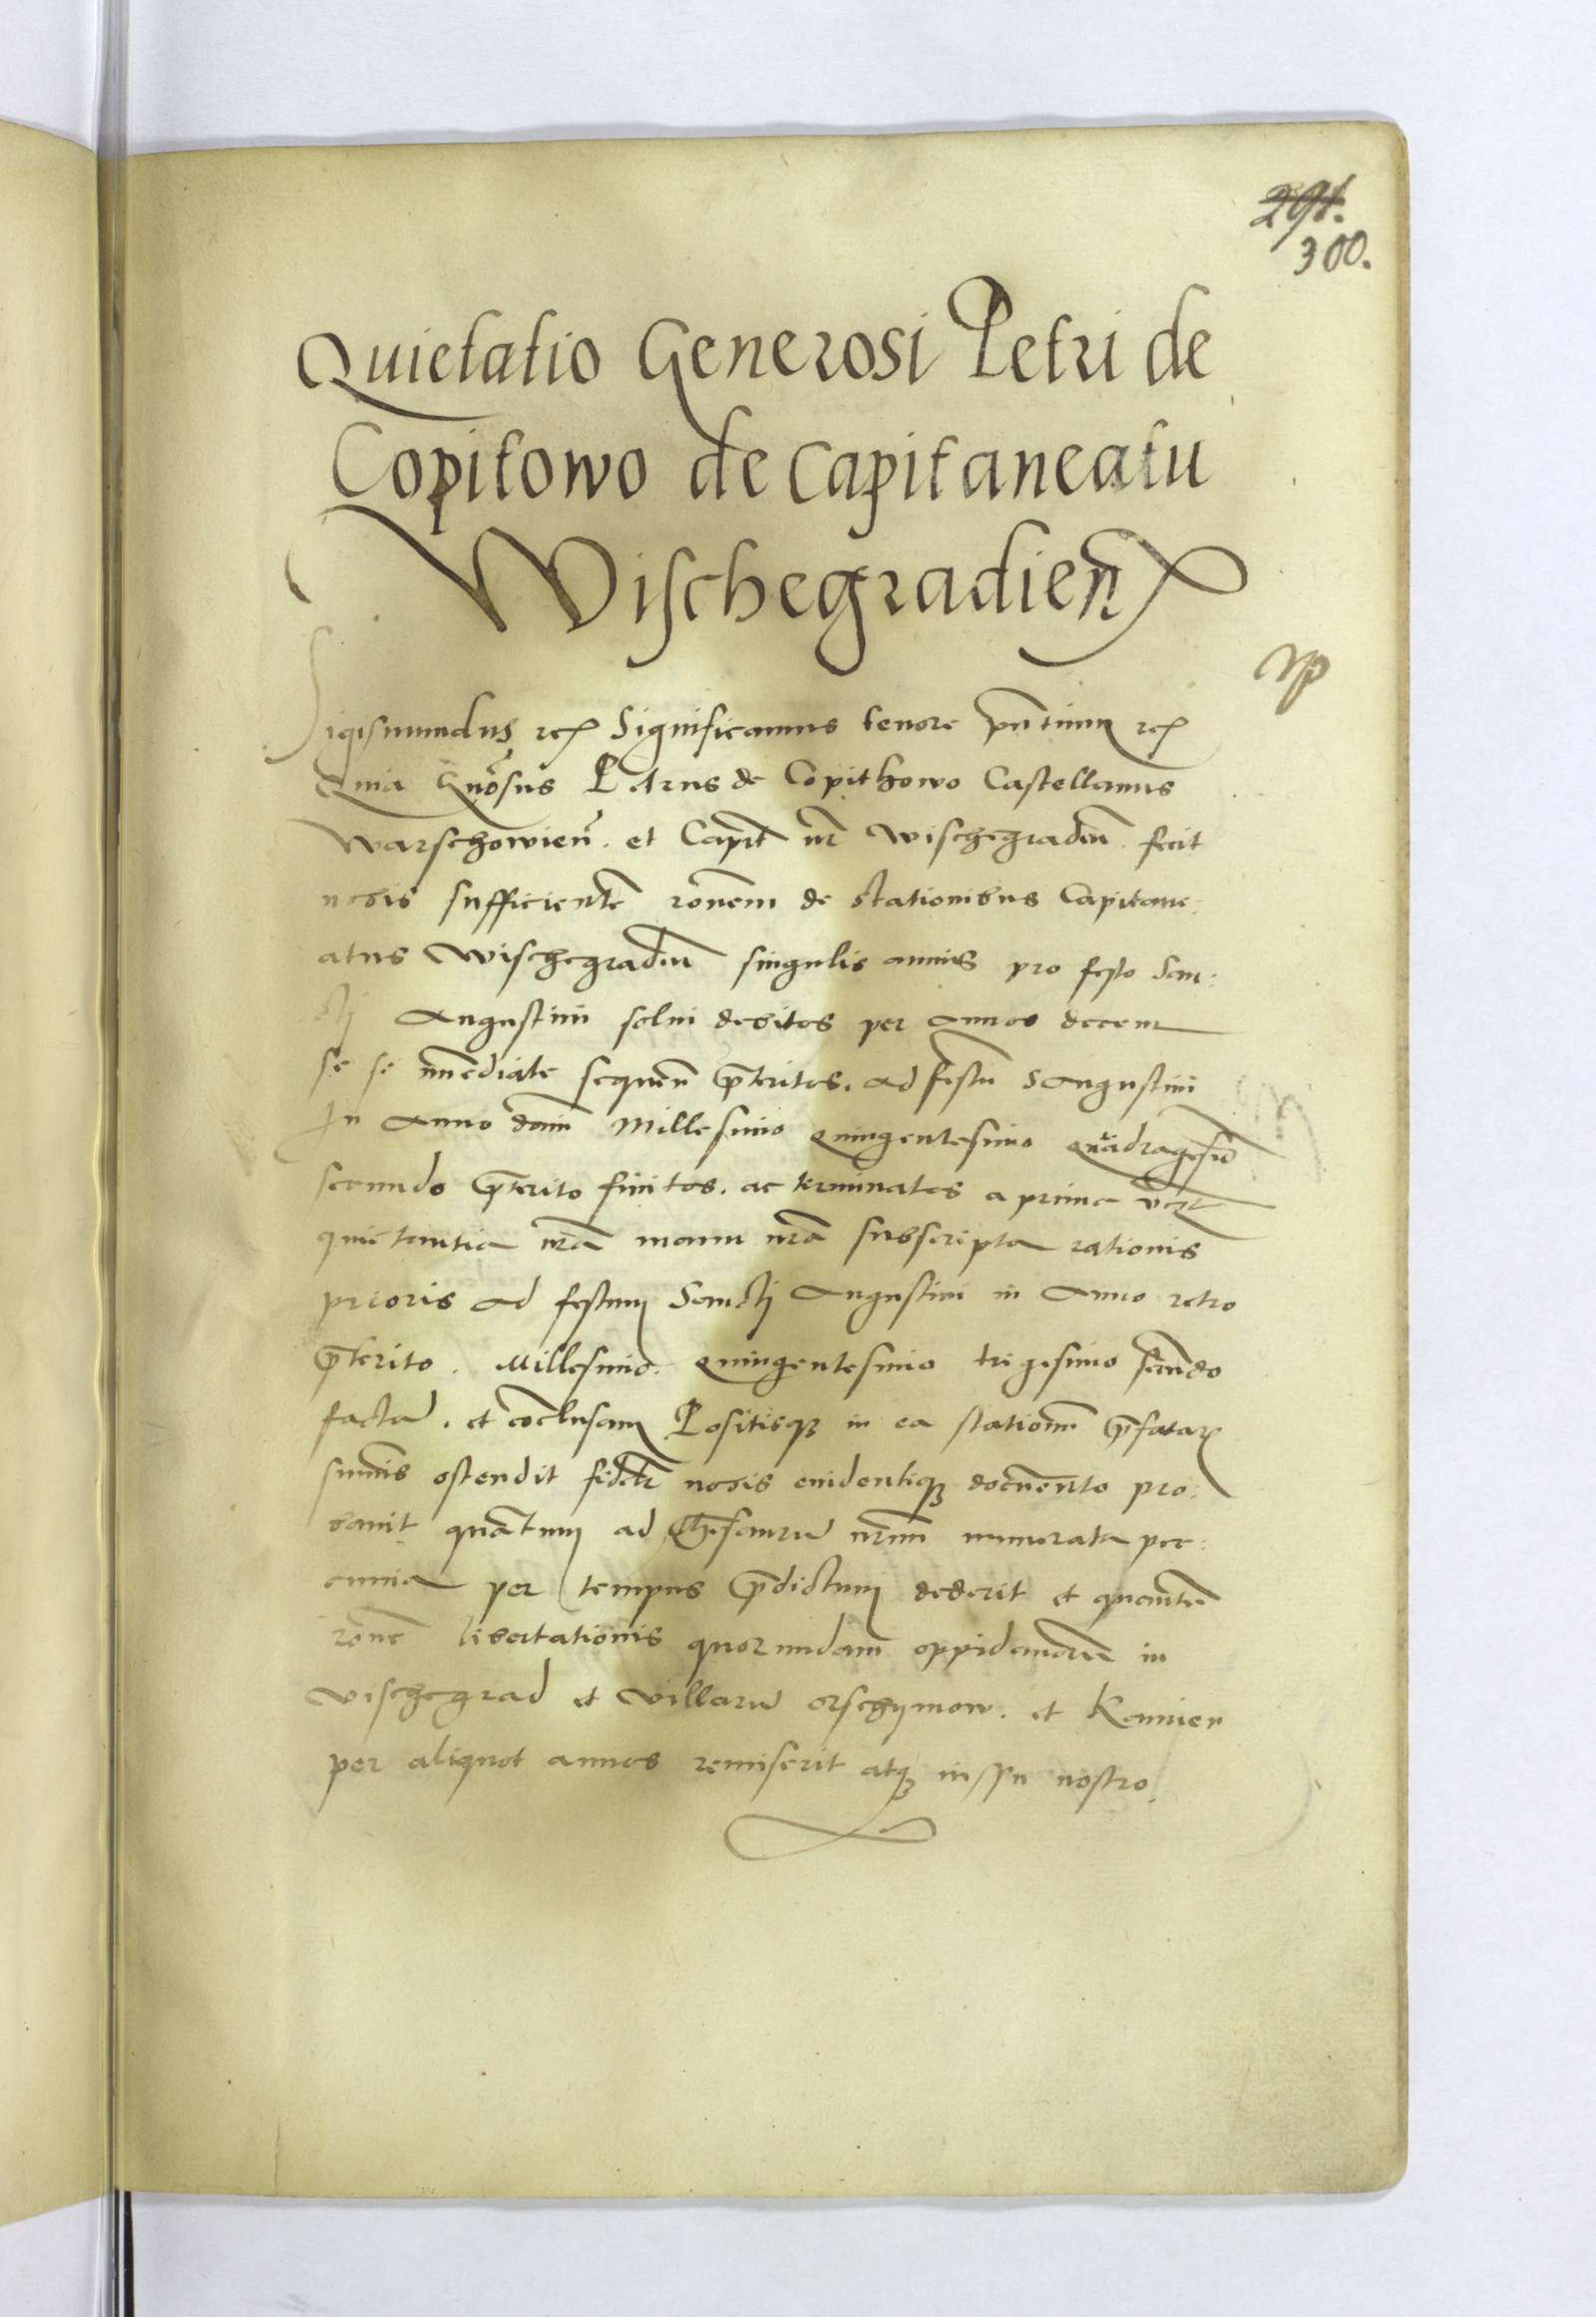 291.
300.
Quietatio Generosi Petri de
Copitowo de Capitaneatu
Wischegradien̄
Sigismundus rex Significamus tenore pn̄tium rex
Quia Gn̄osus Petrus de Copithowo Castellanus
Warschowien̄. et Capit nr̄ Wischegradien̄ fecit
nobis sufficientē rōnem de stationibus Capitane:
atus Wischegradien̄ singulis annis pro festo San:
cti Augustini solui debitos per annos decem
se se īmediate sequen̄ p̄teritos. ad festū S Augustini
In Anno dn̄i Millesimo quingentesimo quadragesīo
secundo p̄terito finitos. ac terminatos a prima
quietantia nr̄a manu nr̄a subscripta rationis
prioris ad festum Sancti Augustini in Anno retro
p̄terito. Millesimo. quingentesimo trigesimo secūdo
factā. et cōclusam Positisq̨ in ea stationū p̄fatar̄
sum̄is ostendit nobis euidentiq̨ documēto pro:
bauit quātum ad Thesaurū nr̄um numerata pec:
cunia per tempus p̄dictum dederit et quantū
rōne libertationis quorundam oppidanorū in
Vischegrad et villarū orschymow. et Kamien
per aliquot annos remiserit atq̨ iussu nostro.